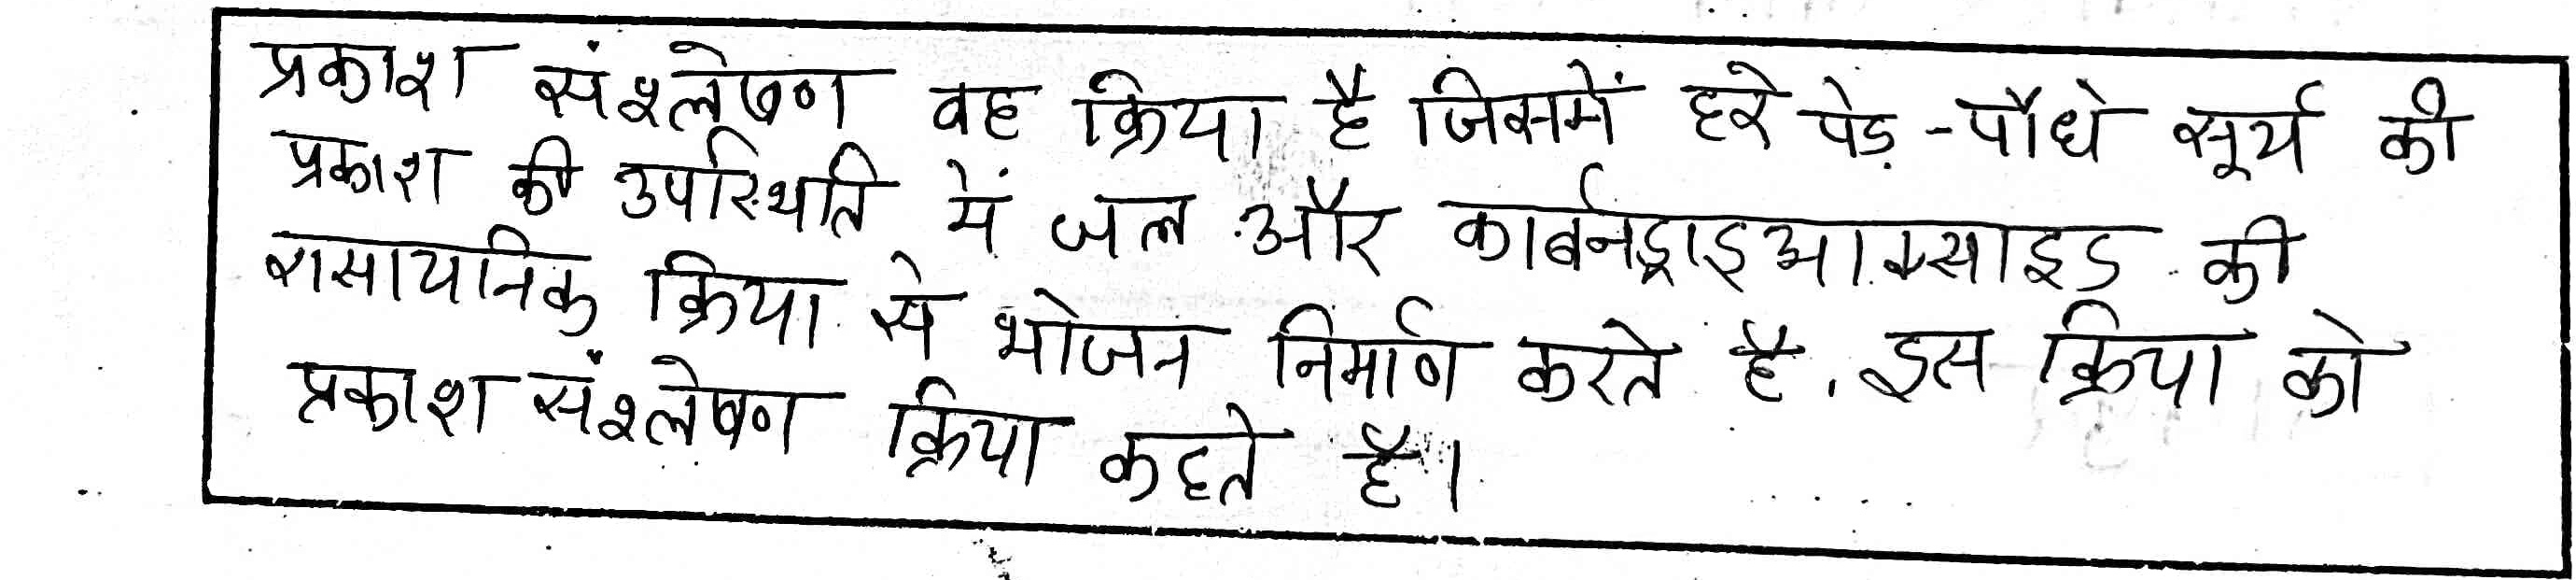 प्रकाश संश्लेषण वह क्रिया है जिसमें हरे पेड़-पौधे सूर्य की
प्रकाश की उपस्थिति में जल और कार्बनड्राइआक्साइड की
रासायनिक क्रिया से भोजन निर्माण करते है. इस क्रिया को
प्रकाश संश्लेषण क्रिया कहते है।